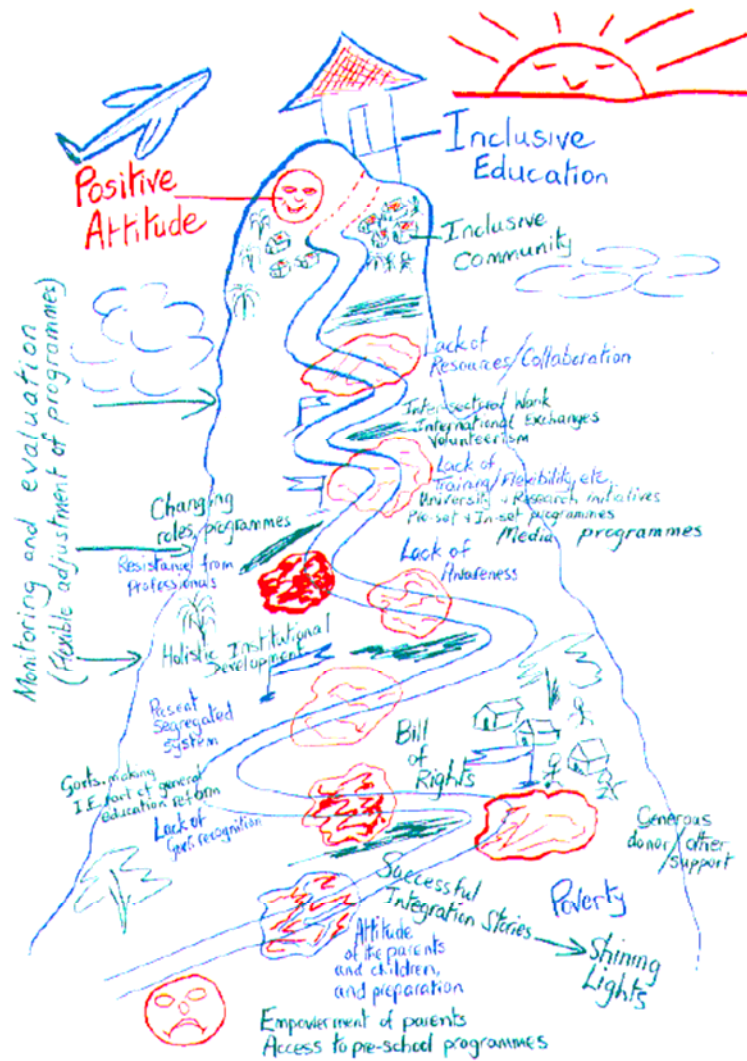 Inclusive
Education
Positive
Attitude
Inclusive
Community
Lack of
Resources/Collaboration
Monitoring and evaluation
(Flexible adjustment of programmes)
Intersectoral Work
International Exchanges
Volunteerism
Lack of
Training/Flexibility, etc.
University + Research initiatives
Pre-set + In-set programmes
Media programmes
Changing
roles, programmes
Resistance from
professionals
Lack of
Awareness
Holistic Institutional
Development
Present
segregated
system
Bill
of
Rights
Govts. making
I.E. part of general
education reform
Lack of
Govt's recognition
Generous
donor/other
support
Successful
Integration Stories
Poverty
Shining
Lights
Attitude
of the parents
and children,
and preparation
Empowerment of parents
Access to pre-school programmes